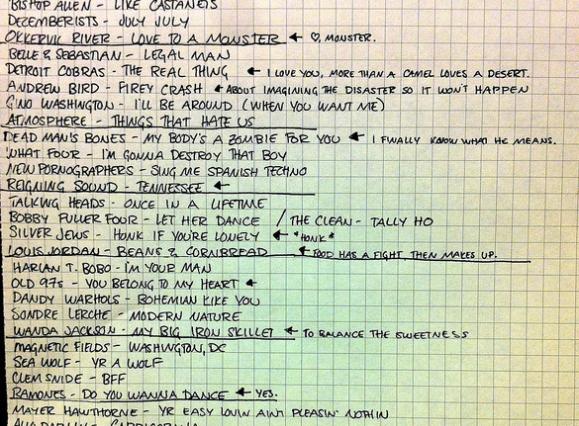 BISHOP ALLEN - LIKE CASTANETS
DECEMBERISTS - JULY JULY
OKKERVIL RIVER - LOVE TO A MONSTER ← ♡, MONSTER.
BELLE & SEBASTIAN - LEGAL MAN
DETROIT COBRAS - THE REAL THING ← I LOVE YOU, MORE THAN A CAMEL LOVES A DESERT.
ANDREW BIRD - FIREY CRASH ← ABOUT IMAGINING THE DISASTER SO IT WON'T HAPPEN
GINO WASHINGTON - I'LL BE AROUND (WHEN YOU WANT ME)
ATMOSPHERE - THINGS THAT HATE US
DEAD MAN'S BONES - MY BODY'S A ZOMBIE FOR YOU ← I FINALLY KNOW WHAT HE MEANS.
WHAT FOUR - I'M GONNA DESTROY THAT BOY
NEW PORNOGRAPHERS - SING ME SPANISH TECHNO
REIGNING SOUND - TENNESSEE ←
TALKING HEADS - ONCE IN A LIFETIME
BOBBY FULLER FOUR - LET HER DANCE / THE CLEAN - TALLY HO
SILVER JEWS - HONK IF YOU'RE LONELY ← *HONK*
LOUIS JORDAN - BEANS & CORNBREAD ← FOOD HAS A FIGHT, THEN MAKES UP.
HARLAN T. BOBO - I'M YOUR MAN
OLD 97s - YOU BELONG TO MY HEART ←
DANDY WARHOLS - BOHEMIAN LIKE YOU
SONDRE LERCHE - MODERN NATURE
WANDA JACKSON - MY BIG IRON SKILLET ← TO BALANCE THE SWEETNESS
MAGNETIC FIELDS - WASHINGTON, DC
SEA WOLF - YR A WOLF
CLEM SNIDE - BFF
RAMONES - DO YOU WANNA DANCE ← YES.
MAYER HAWTHORNE - YR EASY LOVIN AIN'T PLEASIN' NOTHIN